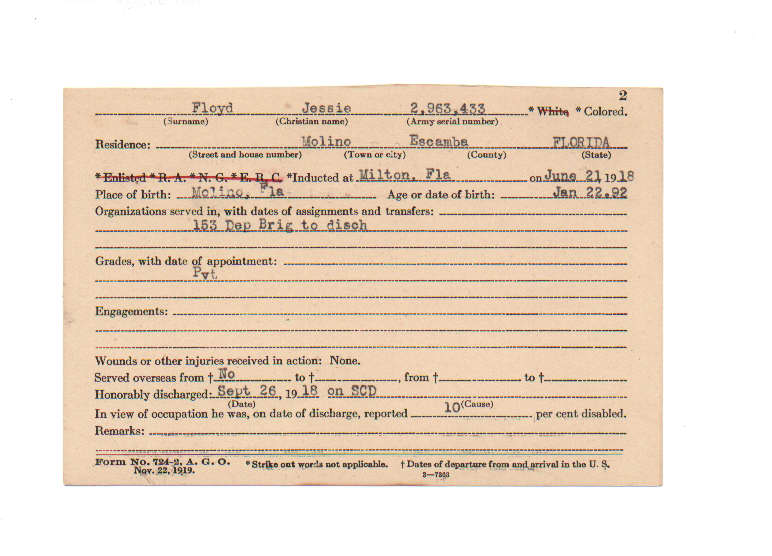 2
Floyd Jessie 2,963,433 * White * Colored.
(Surname) (Christian name) (Army serial number)
Residence: Molino Escamba FLORIDA
(Street and house number) (Town or city) (County) (State)
* Enlisted * R. A. * N. G. * E. R. C. *Inducted at Milton, Fla on June 21, 1918
Place of birth: Molino, Fla Age or date of birth: Jan 22.92
Organizations served in, with dates of assignments and transfers:
153 Dep Brig to disch
Grades, with date of appointment:
Pvt
Engagements:
Wounds or other injuries received in action: None.
Served overseas from † No to †, from † to †
Honorably discharged: Sept 26, 1918 on SCD
(Date) (Cause)
In view of occupation he was, on date of discharge, reported 10 per cent disabled.
Remarks:
Form No. 724-2, A. G. O. *Strike out words not applicable. † Dates of departure from and arrival in the U. S.
Nov. 22, 1919. 3—7363